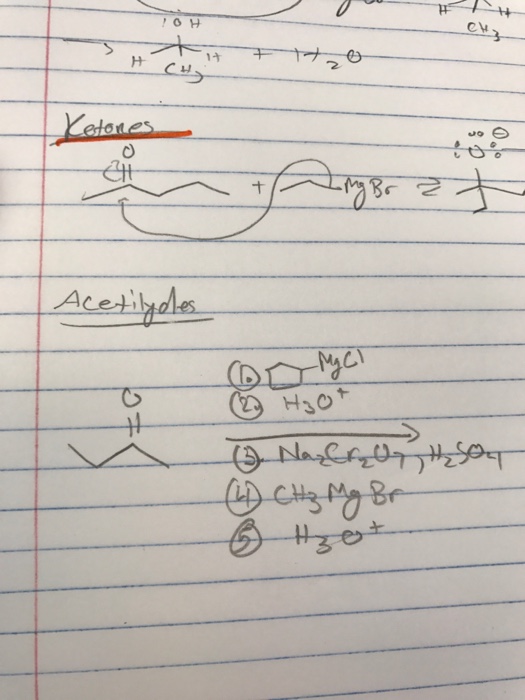 :OH H H
H H + H2O CH3
CH3
Ketones
O ⊖
O
+ MgBr ⇌
Acetilydes
① MgCl
② H3O+
O
③ Na2Cr2O7, H2SO4
④ CH3MgBr
⑤ H3O+